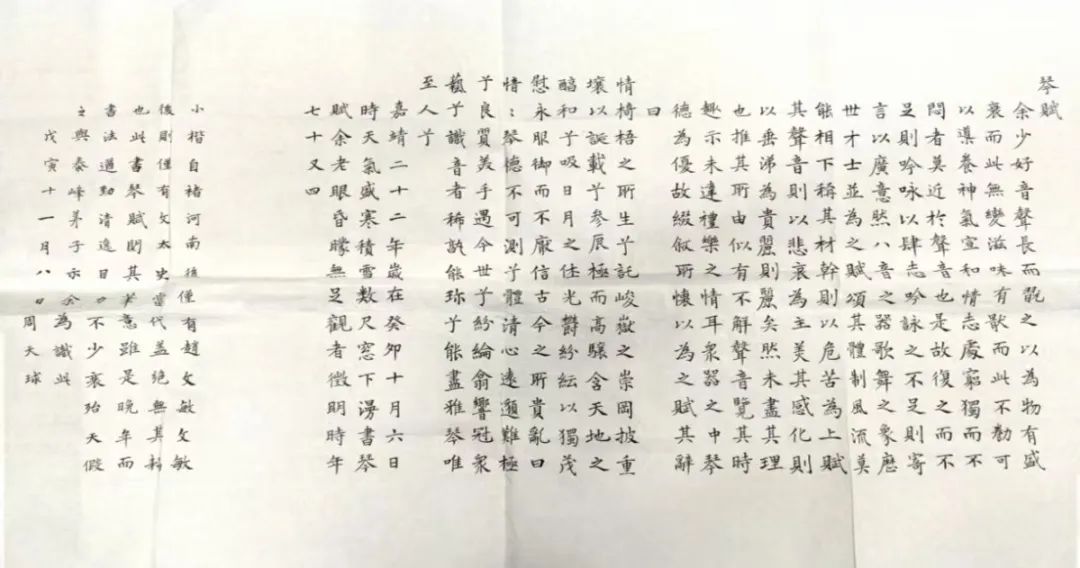 琴賦
余少好音聲長而翫之以為物有盛
衰而此無變滋味有猒而此不勌可
以導養神氣宣和情志處窮獨而不
悶者莫近於聲音也是故復之而不
足則吟咏以肆志吟詠之不足則寄
言以廣意然八音之器歌舞之象歷
世才士並為之賦頌其體制風流莫
能相下稱其材幹則以危苦為上賦
其聲音則以悲哀為主美其感化則
以垂涕為貴麗則麗矣然未盡其理
也推其所由似有不解聲音覽其時
趣示未達禮樂之情耳衆器之中琴
德為優故綴叙所懷以為之賦其辭
曰
情椅梧之所生兮託峻嶽之崇岡披重
壤以誕載兮參辰極而高驤含天地之
醇和兮吸日月之休光鬱紛紜以獨茂
慰永服御而不厭信古今之所貴亂曰
愔〻琴德不可測兮體清心遠邈難極
兮良質美手遇今世兮紛綸翕響冠衆
藝兮識音者稀孰能珍兮能盡雅琴唯
至人兮
嘉靖二十二年歲在癸卯十月六日
時天氣盛寒積雪數尺窓下漫書琴
賦余老眼昏矇無足觀者徵明時年
七十又四
小楷自褚河南後僅有趙文敏文敏
後則僅有文太史當代蓋絶無其
也此書琴賦閒其筆意雖是晚年而
書法遒勁清逸日力不少衰殆天假
之與泰峰弟子示余為識此
戊寅十一月八日周天球